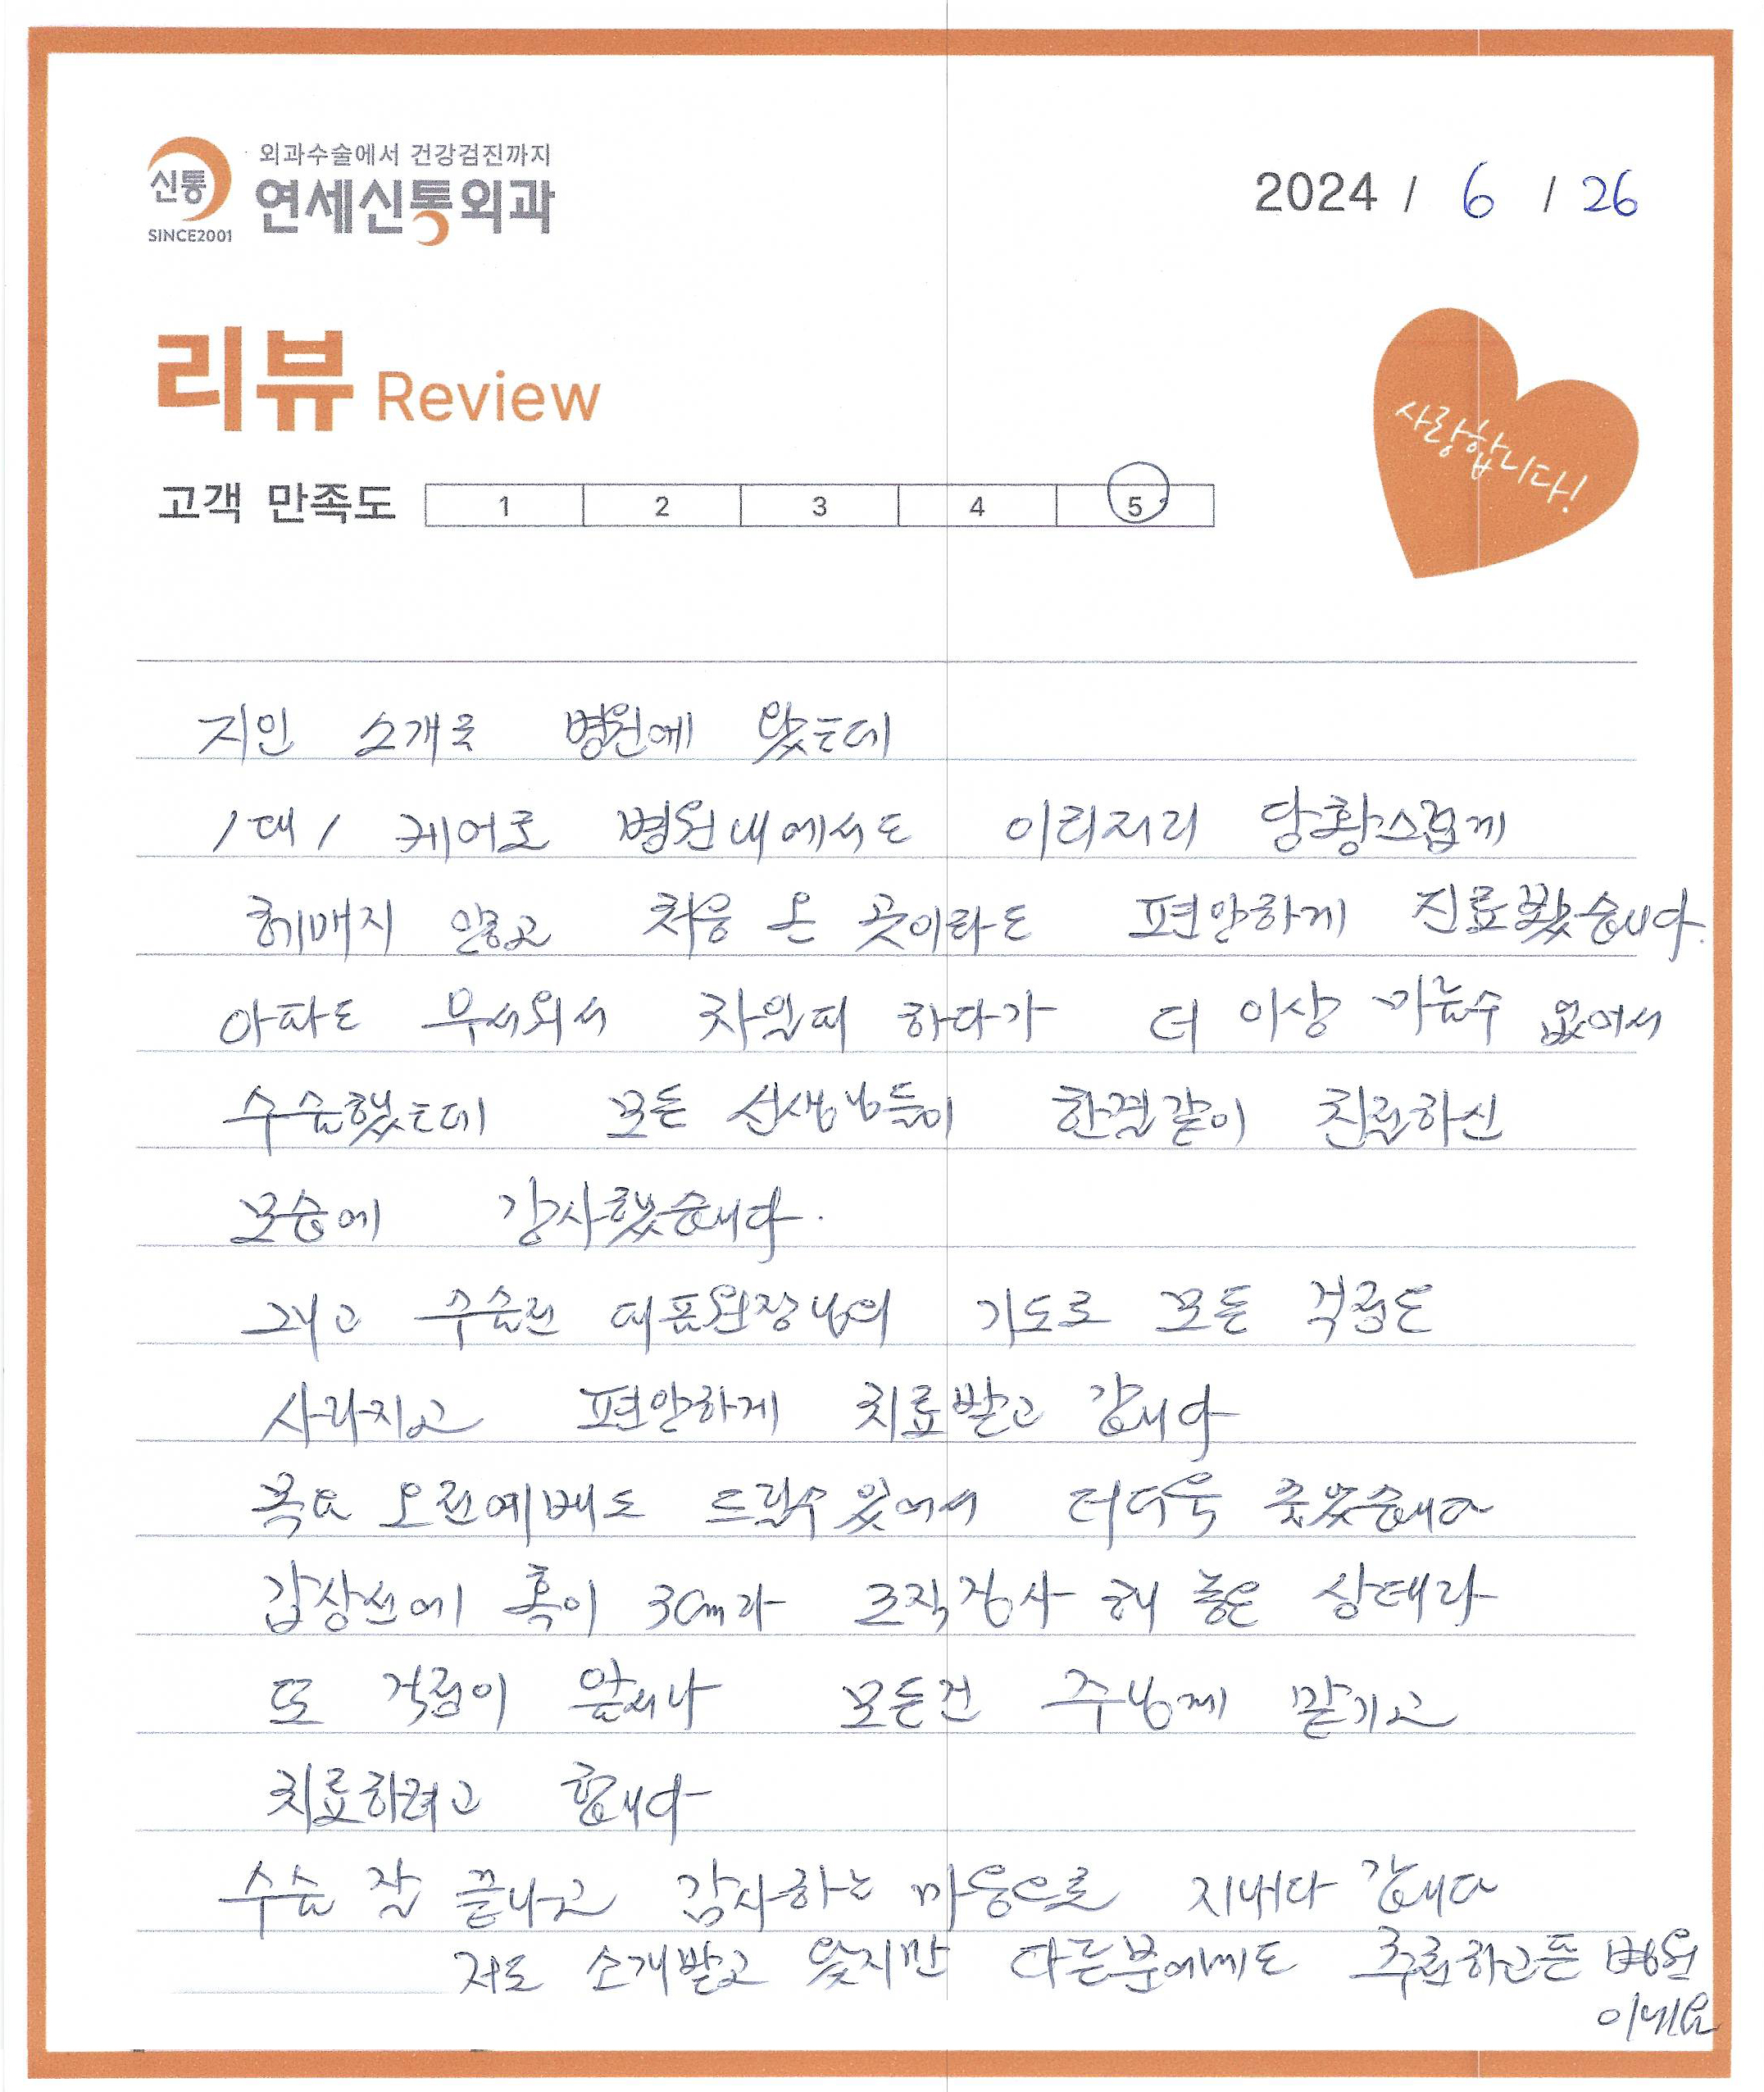 신통
SINCE2001
외과수술에서 건강검진까지
연세신통외과
2024 / 6 / 26
리뷰 Review
사랑합니다!
고객 만족도 1 2 3 4 5
지인 소개로 병원에 왔는데
1대1 케어로 병원내에서도 이리저리 당황스럽게
헤매지 않고 처음 온 곳이라도 편안하게 진료봤습니다.
아파도 무서워서 차일피 하다가 더 이상 미룰수 없어서
수술했는데 모든 선생님들이 한결같이 친절하신
모습에 감사했습니다.
그리고 수술전 대표원장님의 기도로 모든 걱정은
사라지고 편안하게 치료받고 갑니다
목요 오전예배도 드릴수 있어서 더더욱 좋았습니다
갑상선에 혹이 3cm라 조직검사 해 놓은 상태라
또 걱정이 앞서나 모든건 주님께 맡기고
치료하려고 합니다
수술 잘 끝나고 감사하는 마음으로 지내다 갑니다
저도 소개받고 왔지만 다른분에게도 추천하고픈 병원
이네요